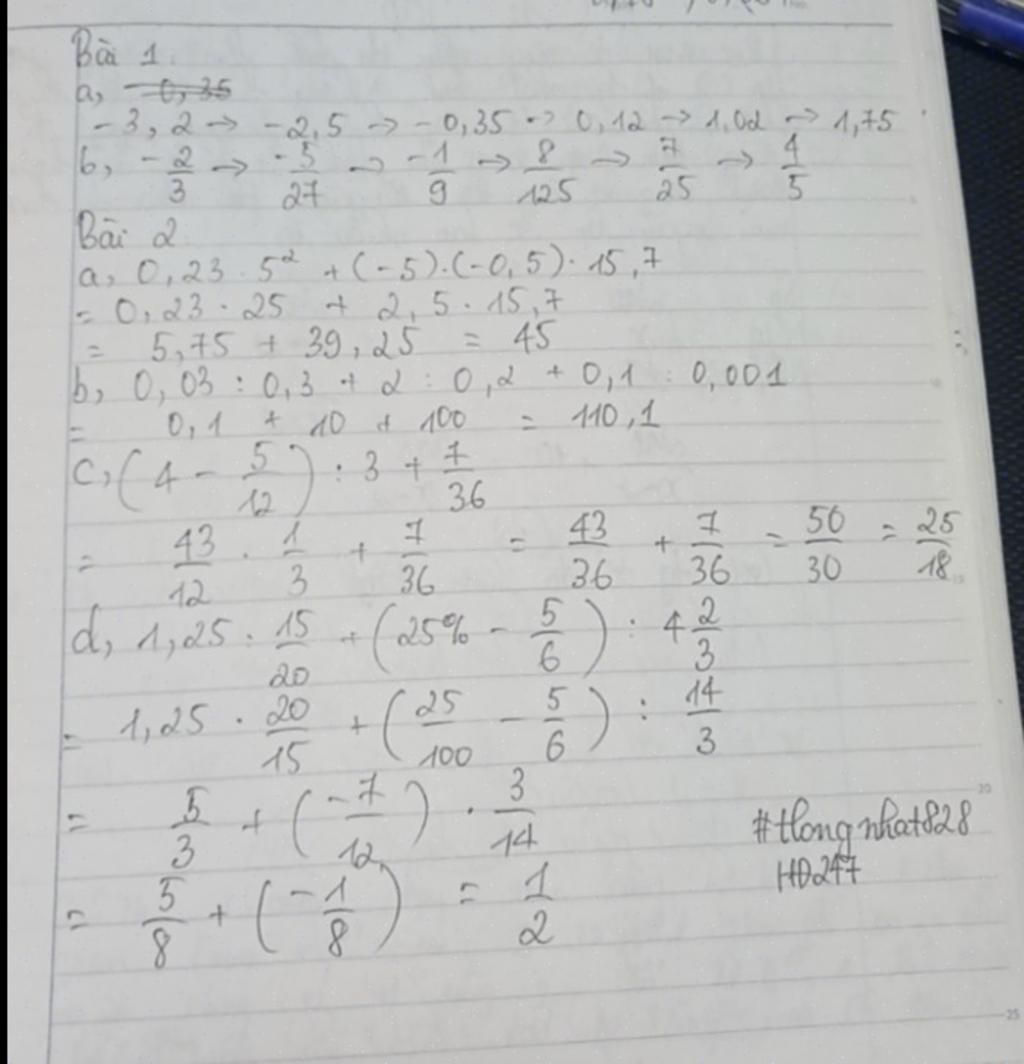 Bài 1.
a, -0,35
-3,2 → -2,5 → -0,35 → 0,12 → 1,02 → 1,75
b, -2/3 → -5/27 → -1/9 → 8/125 → 7/25 → 4/5
Bài 2
a, 0,23 · 5² + (-5).(-0,5) · 15,7
= 0,23 · 25 + 2,5 · 15,7
= 5,75 + 39,25 = 45
b, 0,03 : 0,3 + 2 : 0,2 + 0,1 : 0,001
= 0,1 + 10 + 100 = 110,1
c, (4 - 5/12) : 3 + 7/36
= 43/12 · 1/3 + 7/36 = 43/36 + 7/36 = 50/30 = 25/18
d, 1,25 · 15/20 + (25% - 5/6) : 4 2/3
= 1,25 · 20/15 + (25/100 - 5/6) : 14/3
= 5/3 + (-7/12) · 3/14
= 5/8 + (-1/8) = 1/2
#tlongnhat828
HĐ247
20
25